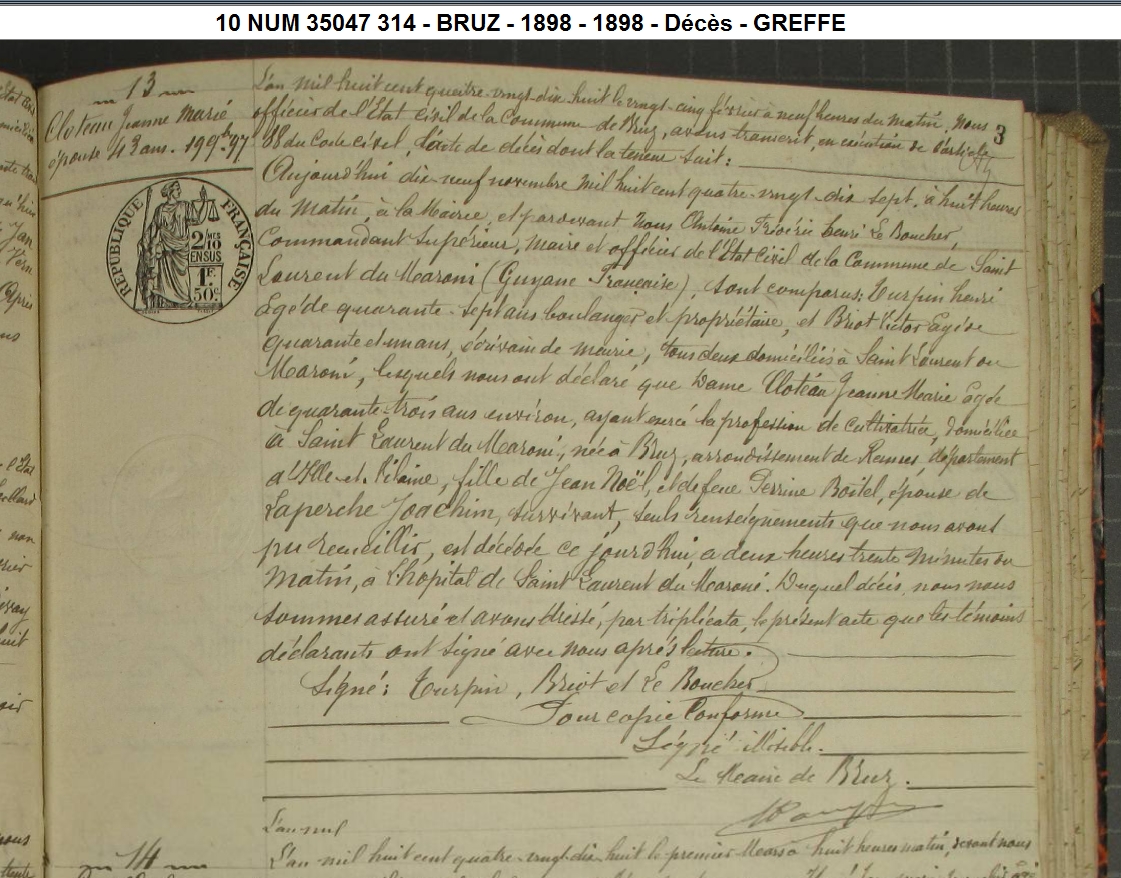 10 NUM 35047 314 - BRUZ - 1898 - 1898 - Décès - GREFFE
3
13
Cloteau Jeanne Marie
épouse 43 ans. 19 9bre 97
RÉPUBLIQUE FRANÇAISE
2/10 MES
EN SUS
1F.
50c
L'an mil huit cent quatre-vingt-dix-huit le vingt-cinq février à neuf heures du matin, Nous
officier de l'Etat civil de la Commune de Bruz, avons transcrit, en exécution de l'article
88 du Code civil, l'acte de décès dont la teneur suit:
Aujourd'hui dix-neuf novembre mil huit cent quatre-vingt-dix sept, à huit heures
du matin, à la Mairie, et pardevant Nous Antoine Henri Le Boucher,
Commandant Supérieur, Maire et officier de l'Etat Civil de la Commune de Saint
Laurent du Maroni (Guyane Française), sont comparus: Turpin henri
âgé de quarante-sept ans boulanger et propriétaire, et Briot Victor âgé de
quarante et un ans, écrivain de mairie, tous deux domiciliés à Saint Laurent du
Maroni, lesquels nous ont déclaré que Dame Cloteau Jeanne Marie âgée
de quarante-trois ans environ, ayant exercé la profession de cultivatrice, domiciliée
à Saint Laurent du Maroni, née à Bruz, arrondissement de Rennes, département
d'Ille-et-Vilaine, fille de Jean Noël, et de feue Perrine Boitel, épouse de
Laperche Joachim, survivant, seuls renseignements que nous avons
pu recueillir, est décédée ce jourd'hui à deux heures trente minutes du
matin, à l'hopital de Saint Laurent du Maroni. Duquel décès, nous nous
sommes assuré et avons dressé, par triplicata, le présent acte que les témoins
déclarants ont signé avec nous après lecture.
Signé: Turpin, Briot et Le Boucher
Pour copie Conforme
Signé illisible.
Le Maire de Bruz.
L'an mil
14
L'an mil huit cent quatre-vingt-dix-huit le premier Mars à huit heures matin, devant nous